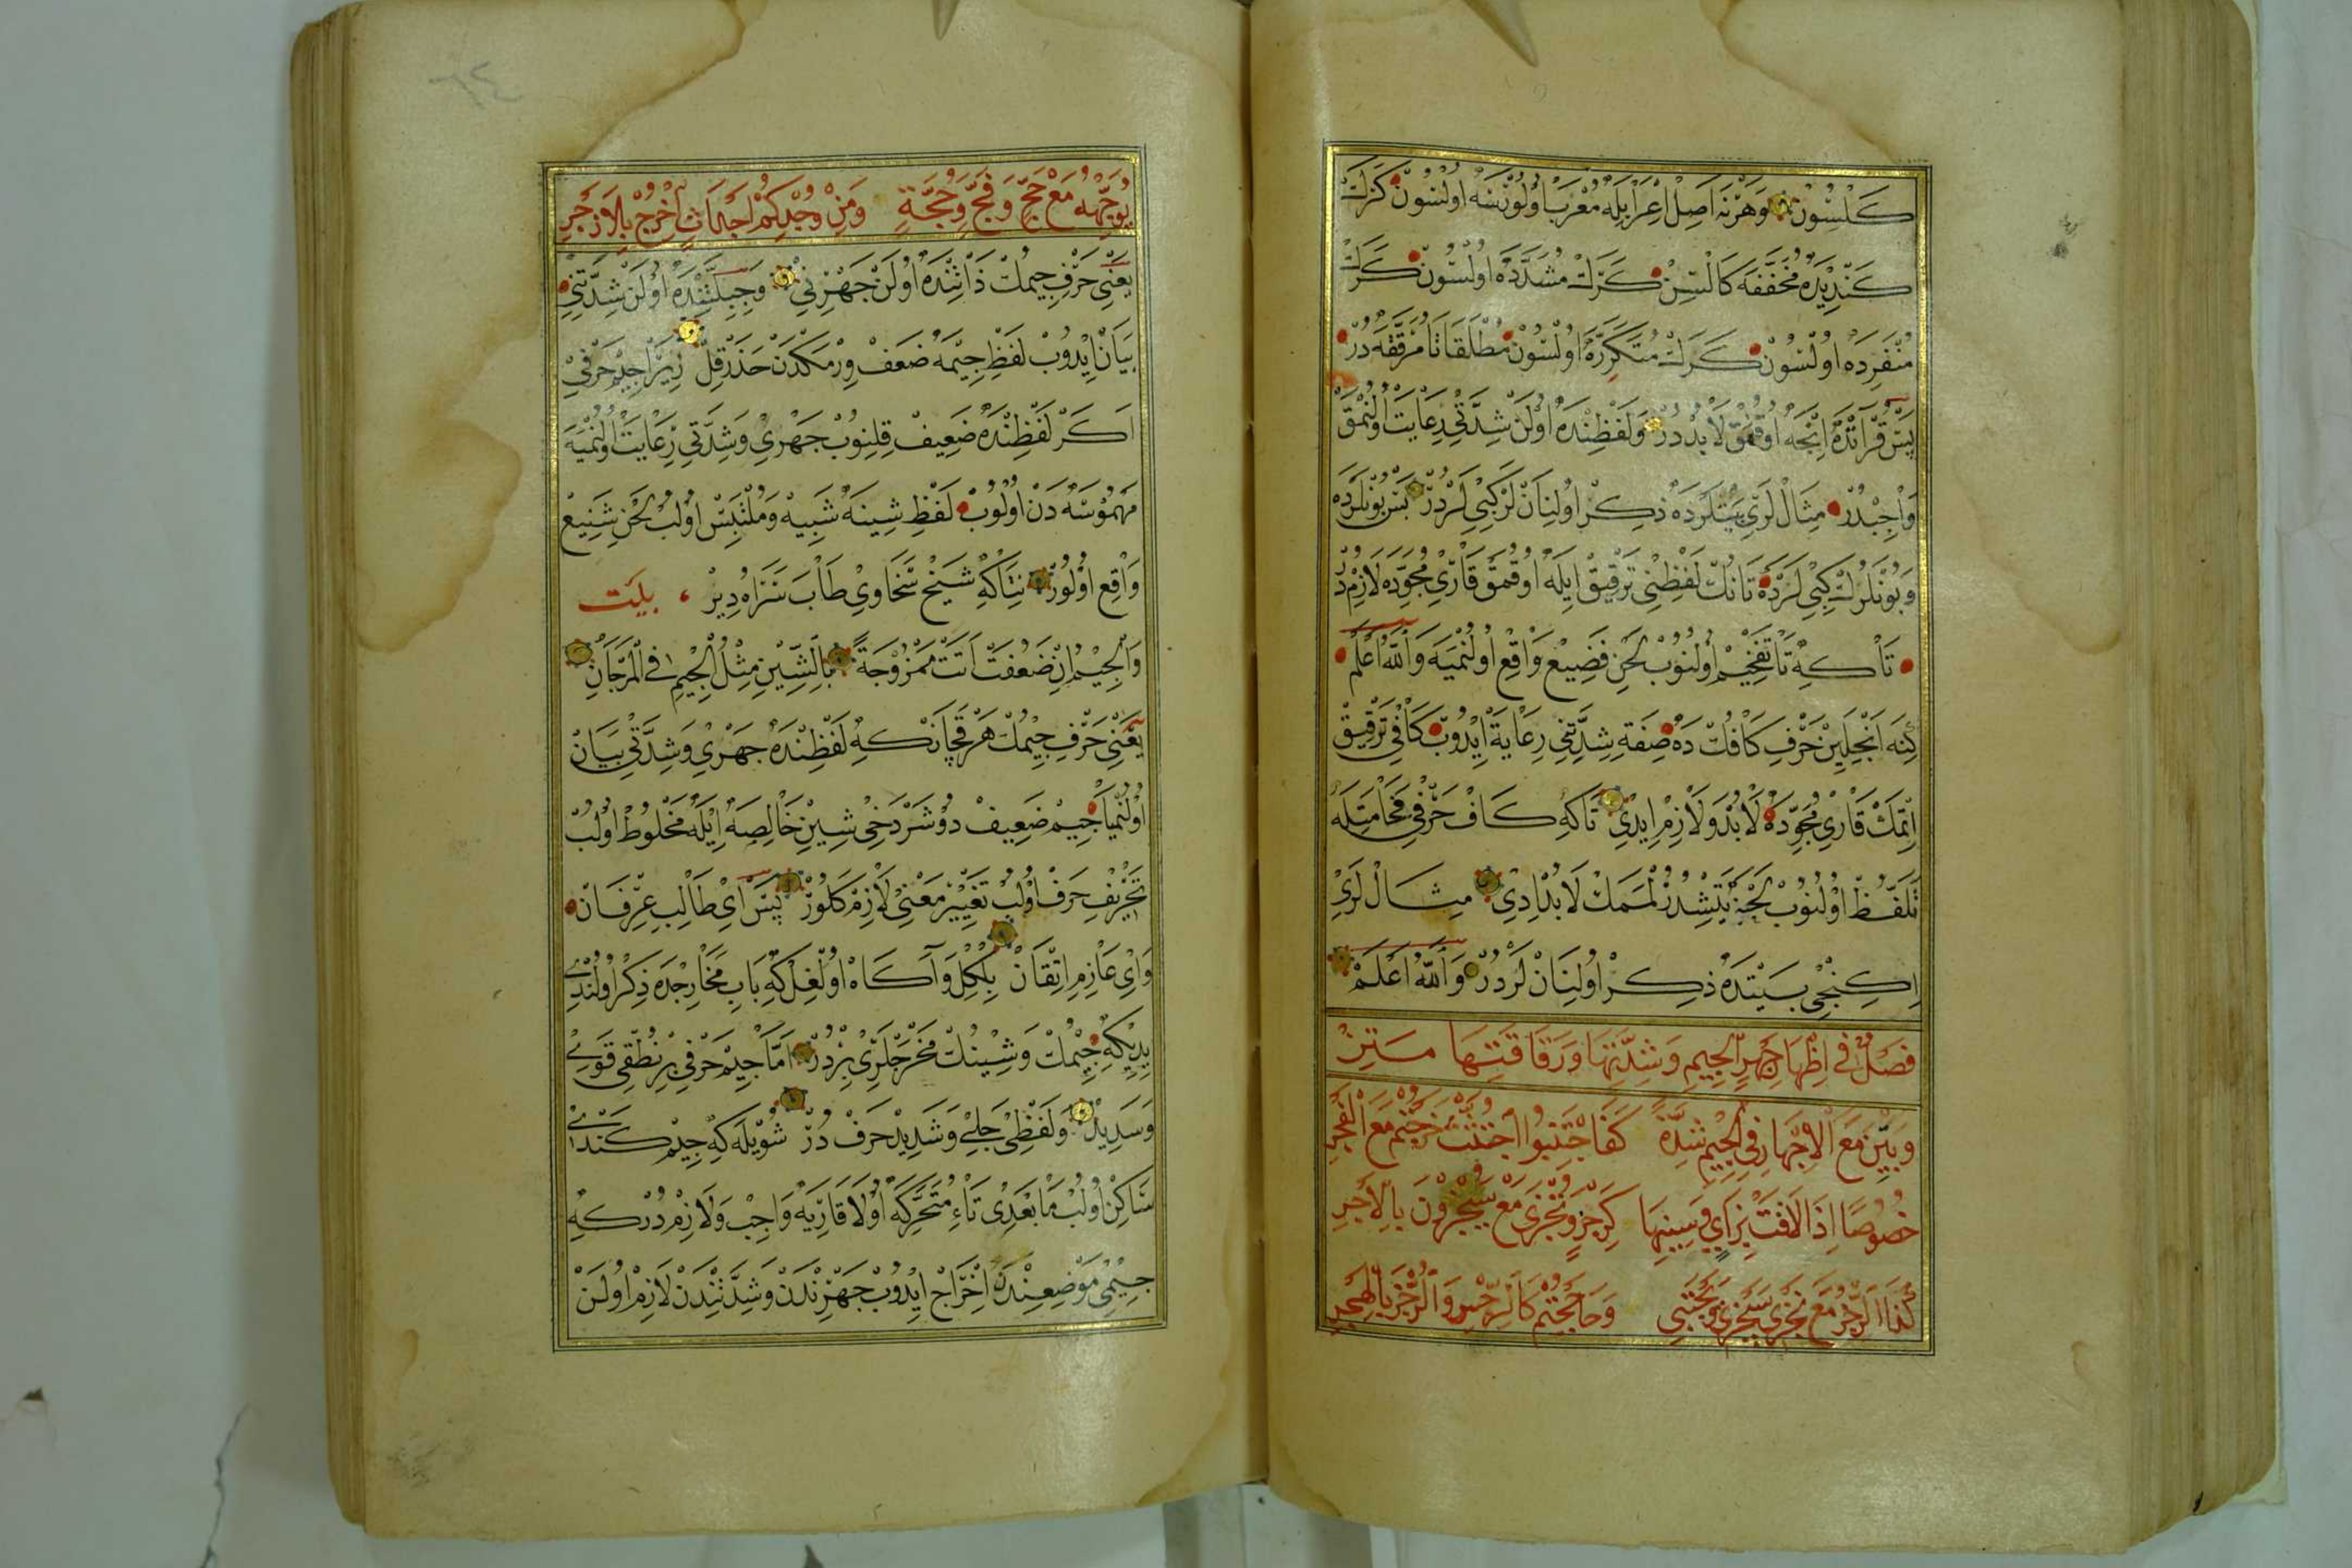 كلسون وهرنه اصل اعرابله معرب اولورسه اولسون كرك
كنديده مخففه كالتسن كرك مشدده اولسون كرك
منفرده اولسون كرك متكرره اولسون مطلقا تا مرققه در
پس قرائتده انجه اوقمق لابددر ولفظنده اولن شدتي رعايت اولنمق
واجبدر مثاللري بيتلرده ذكر اولنانلر كبيلردر بس بونلرده
وبونلرك كبيلرده تانك لفظني ترقيق ايله اوقمق قاري مجوده لازمدر
تاكه تا تفخيم اولنوب لحن فضيع واقع اولنميه والله اعلم
كنه انجلين حرف كافك ده صفة شدتني رعاية ايدوب كافي ترقيق
اتمك قاري مجوده لابد ولازم ايدي تاكه كاف حرفي فخامتله
تلفظ اولنوب لحنه يتشدرلمك لابد ايدي مثاللري
ايكنجي بيتده ذكر اولنانلردر والله اعلم
فصل في اظهار جهر الجيم وشدتها ورقاقتها
وبين مع الاجهار في الجيم شدة كفاجتنبوا اجتثت خرجتم مع الفجر
خصوصا اذا لاقت بزاي وسينها كرجز وتجزى مع يسجرون بالاجر
كذا الرجز مع نجزي سيجزي ويجتبي وحاججتم كالرجس والزجر بالهجر
يوجهه مع حج وفج وحجة ومن وجدكم اجداث اخرج بلا زجر
يعني حرف جيمك ذاتنده اولن جهرني وجبلتنده اولن شدتني
بيان ايدوب لفظ جيمه ضعف ورمكدن حذر قل زيرا جيم حرفي
اكر لفظنده ضعيف قلنوب جهري وشدتي رعايت اولنميه
مهموسه دن اولوب لفظ شينه شبيه وملتبس اولب لحن شنيع
واقع اولور نتاكه شيخ سخاوي طاب ثراه دير بيت
والجيم ان ضعفت اتت ممزوجة بالشين مثل الجيم في المرجان
يعني حرف جيمك هر قچانكه لفظنده جهري وشدتي بيان
اولنميا جيم ضعيف دوشر دخي شين خالصه ايله مخلوط اولب
تحريف حرف اولب تغيير معنى لازم كلور پس اي طالب عرفان
واي عازم اتقان بلكل وآكاه اولغل كه باب مخارجده ذكر اولندي
ديكه جيمك وشينك مخرجلري بردر اما جيم حرفي بر نطقى قوي
وسديد ولفظى جلي وشديد حرف در شويله كه جيم كندي
ساكن اولب ما بعدى تاء متحركه اولا قاريه واجب ولازم در كه
جيمى موضعندن اخراج ايدوب جهرندن وشدتندن لازم اولن